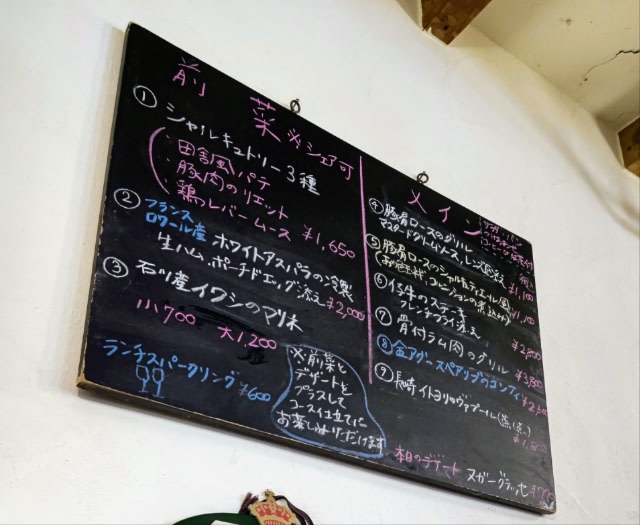 前菜 ※シェア可
① シャルキュトリー3種
・田舎風パテ
・豚肉のリエット
・鶏レバームース ¥1,650
② フランス
ロワール産 ホワイトアスパラの冷製
生ハム、ポーチドエッグ添え ¥2,000
③ 石川産イワシのマリネ
小700 大1,200
ランチスパークリング ¥600
※前菜と
デザートを
プラスして
コース仕立てに
お楽しみいただけます
メイン
④ 豚肩ロースのグリル
マスタードクリームソース、レンズ豆添え
¥1,100
⑤ 豚肩ロースのシャルキュティエール風
¥1,100
⑥ 仔牛のステーキ
フレンチフライ添え
¥2,800
⑦ 骨付ラム肉のグリル
¥3,800
⑧ 金アグースペアリブのコンフィ
⑨ 長崎イトヨリのヴァプール(蒸し煮)
本日のデザート ヌガーグラッセ ¥700